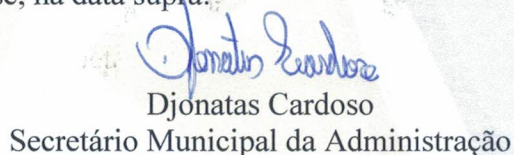 se, na data supra.
Djonatas Cardoso
Djonatas Cardoso
Secretário Municipal da Administração